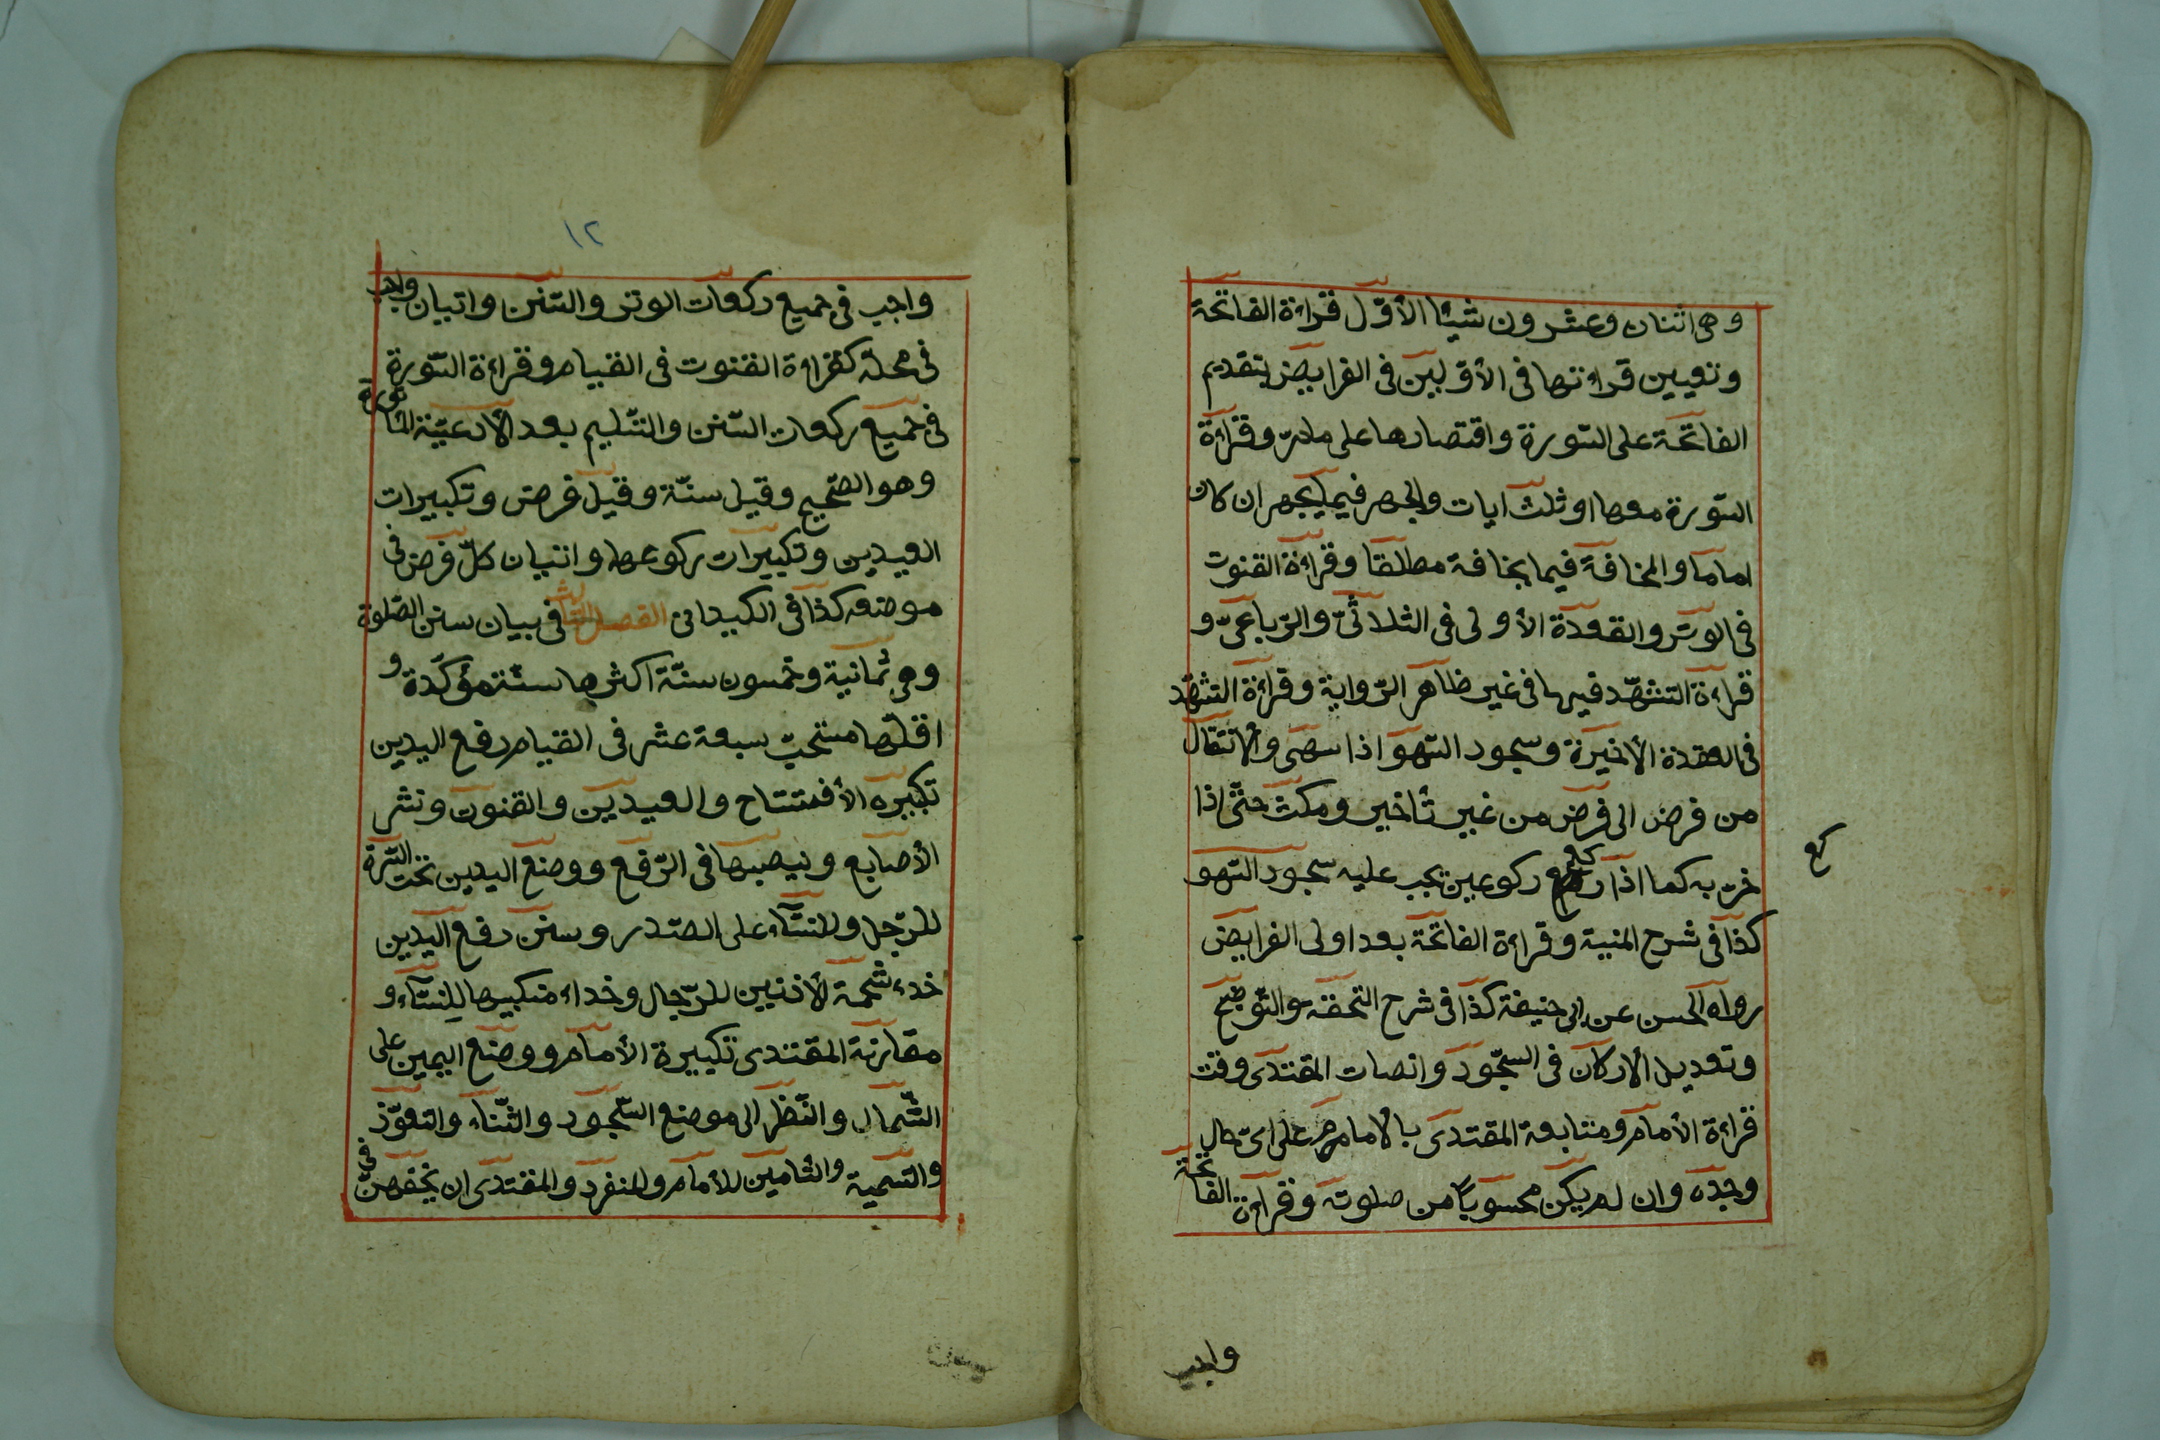 وهى اثنان وعشرون شيئا الأوّل قراءة الفاتحة
وتعيين قراءتها فى الأوّليين فى الفرايض بتقديم
الفاتحة على السّورة واقتصارها على مرّة وقراءة
السّورة معها او ثلث ايات والجهر فيما يجهر ان كان
اماما والمخافة فيما يخافة مطلقا وقراءة القنوت
فى الوتر والقعدة الأولى فى الثلاثىّ والرّباعىّ و
قراءة التشهّد فيها فى غير ظاهر الرّواية وقراءة التشهّد
فى القعدة الأخيرة وسجود السّهو اذا سهى والأنتقال
من فرض الى فرض من غير تأخير ومكث حتّى اذا
كع
خرّ به كما اذا ركع ركوعين يجب عليه سجود السّهو
كذا فى شرح المنية وقراءة الفاتحة بعد اولى الفرايض
رواه الحسن عن ابى حنيفة كذا فى شرح التحفة والتّوضيح
وتعديل الأركان فى السجّود وانصات المقتدى وقت
قراءة الأمام ومتابعة المقتدى بالأمام على اىّ حال
وجده وان لم يكن محسوباً من صلوته وقراءة الفاتحة
واجب
١٢
واجب فى جميع ركعات الوتر والسّنن واتيان واجب
فى محلّه كقراءة القنوت فى القيام وقراءة السّورة
فى جميع ركعات السّنن والتّسليم بعد الأدعيّة المأثورة
وهو الصّحيح وقيل سنّة وقيل فرض وتكبيرات
العيدين وتكبيرات ركوعها واتيان كلّ فرض فى
موضعه كذا فى الكيدانى الفصل الثالث فى بيان سنن الصّلوة
وهى ثمانية وخمسون سنّة اكثرها سنّة مؤكّدة و
اقلّها مستحبّ سبعة عشر فى القيام رفع اليدين
تكبيره الأفتتاح والعيدين والقنوت ونشر
الأصابع ونصبها فى الرّفع ووضع اليدين تحت السّرّة
للرّجل وللنسّاء على الصّدر وسنن رفع اليدين
خداء شحمة الأذنين للرّجال وخداء منكبيها للِنسّاء و
مقارنة المقتدى تكبيرة الأمام ووضع اليمين على
الشّمال والنّظر الى موضع السّجود والثّناء والتعوّذ
والتّسمية والتأمين للأمام والمنفرد والمقتدى ان يخفهنّ فى